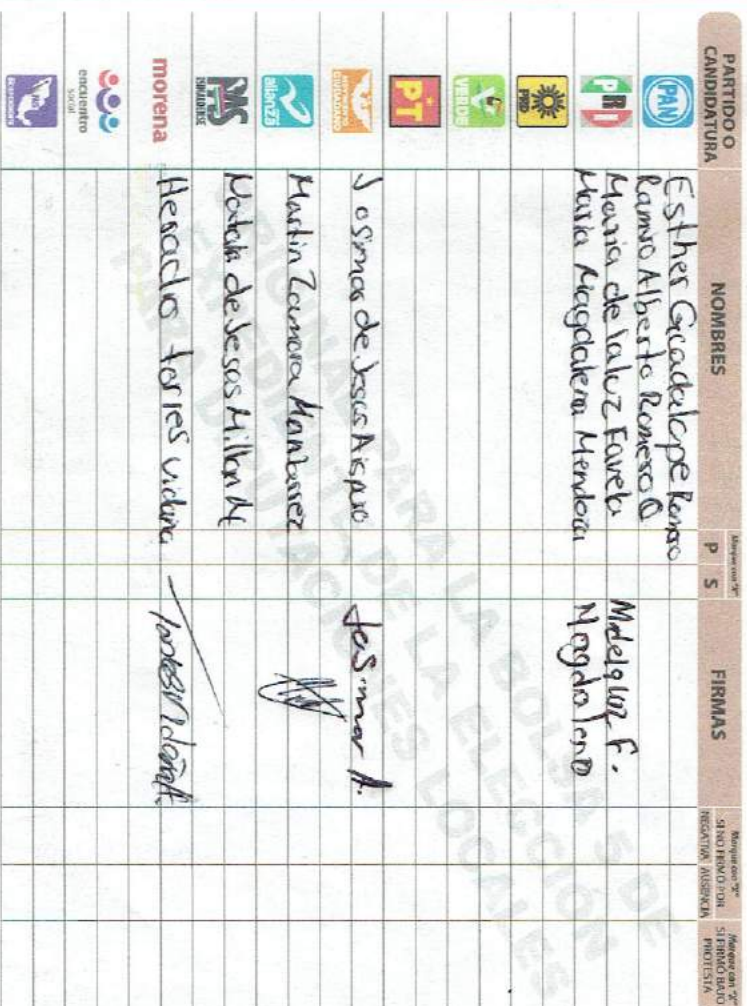 PARTIDO O
CANDIDATURA
NOMBRES
Marque con "X"
P S
FIRMAS
Marque con "X"
SI NO FIRMÓ POR
NEGATIVA AUSENCIA
Marque con "X"
SI FIRMÓ BAJO
PROTESTA
PAN
Esther Guadalupe Romero
Ramiro Alberto Romero O
PRI
Maria de la luz Favela
Ma de la luz F.
Maria Magdalena Mendoza
Magdalena
PRD
VERDE
PT
MOVIMIENTO
CIUDADANO
Josimar de Jesus Aispuro
Josimar A.
alianza
Martin Zamora Manjarrez
PAS
SINALOENSE
Natalia de Jesus Millan M
morena
Heraclio torres vidaña
encuentro
social
ORIGINAL PARA LA BOLSA 5 DE
EXPEDIENTE DE LA ELECCIÓN
PARA DIPUTACIONES LOCALES